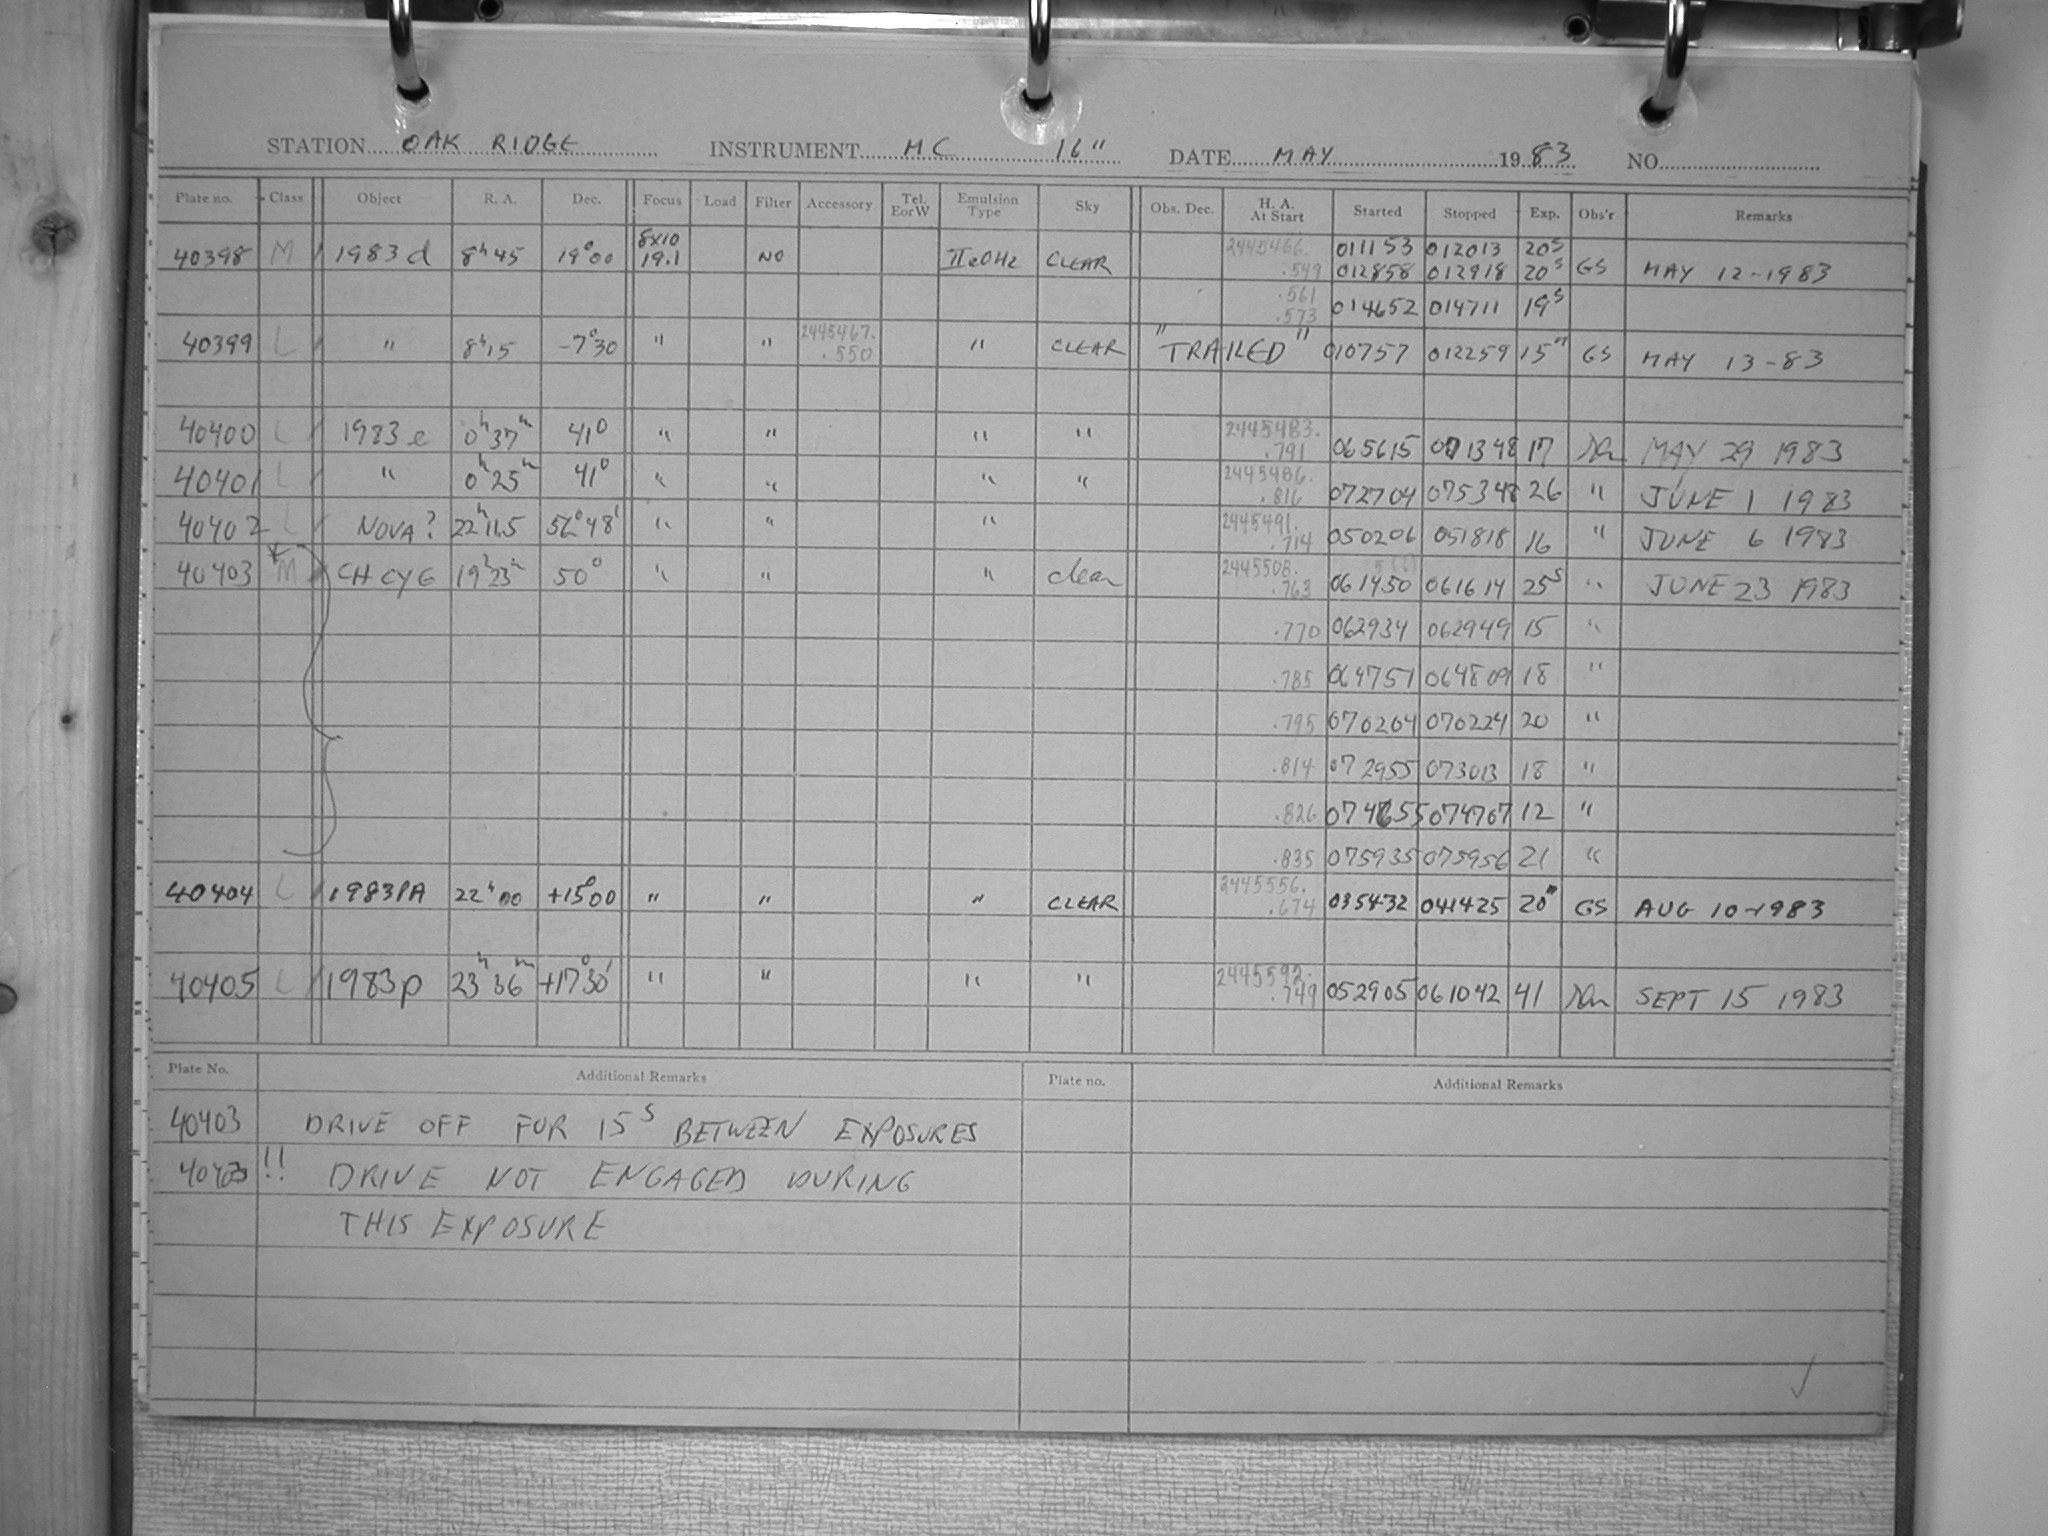 STATION OAK RIDGE INSTRUMENT MC 16" DATE MAY 1983 NO.
Plate no. Class Object R. A. Dec. Focus Load Filter Accessory Tel. E or W Emulsion Type Sky Obs. Dec. H. A. At Start Started Stopped Exp. Obs'r Remarks
8x10 2445466. 011153 012013 20s
40398 M 1983d 8h45 19°00 19.1 NO IIaOH2 CLEAR .549 012858 012918 20s GS MAY 12-1983
.561 014652 014711 19s
.573
40399 L " 8h15 -7°30 " " 2445467. .550 " CLEAR "TRAILED" 010757 012259 15m GS MAY 13-83
40400 L 1983e 0h37m 41° " " " " 2445483. .791 065615 071348 17 MAY 29 1983
40401 L " 0h25m 41° " " " " 2445486. .816 072704 075348 26 " JUNE 1 1983
40402 L NOVA? 22h11.5 56°48' " " " 2445491. .714 050206 051818 16 " JUNE 6 1983
40403 * M CH CYG 19h23m 50° " " " clear 2445508. .763 061450 061614 25s " JUNE 23 1983
.770 062934 062949 15 "
.785 064751 064809 18 "
.795 070204 070224 20 "
.814 072955 073013 18 "
.826 074655 074707 12 "
.835 075935 075956 21 "
40404 L 1983 PA 22h00 +15°00 " " " CLEAR 2445556. .674 035432 041425 20m GS AUG 10-1983
40405 L 1983p 23h36m +17°30' " " " " 2445592. .749 052905 061042 41 SEPT 15 1983
Plate No. Additional Remarks Plate no. Additional Remarks
40403 DRIVE OFF FOR 15s BETWEEN EXPOSURES
40403 !! DRIVE NOT ENGAGED DURING
THIS EXPOSURE